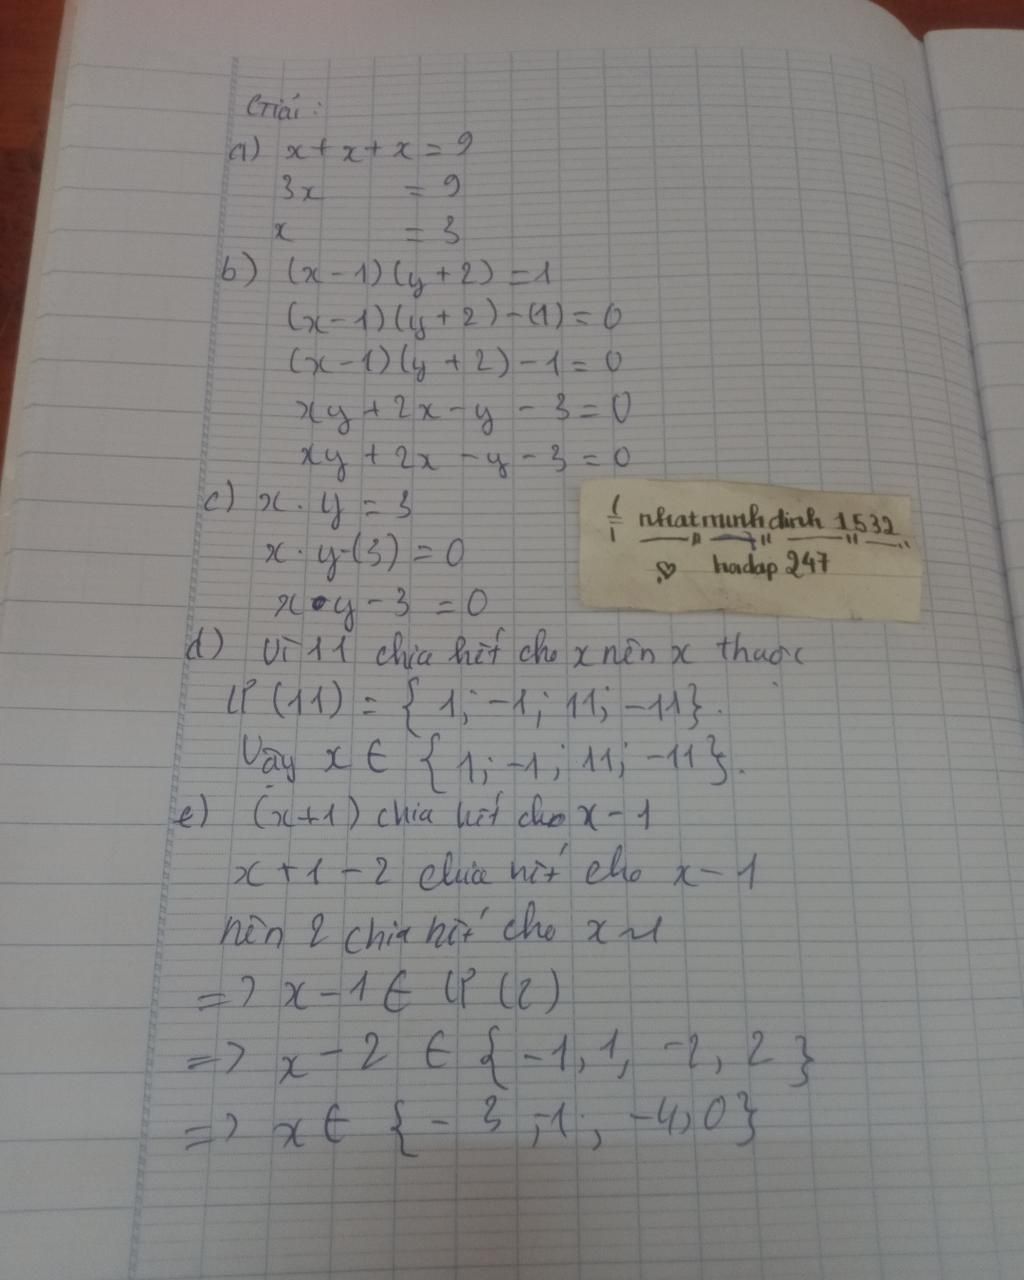 Giải:
a) x + x + x = 9
3x = 9
x = 3
b) (x - 1)(y + 2) = 1
(x - 1)(y + 2) - (1) = 0
(x - 1)(y + 2) - 1 = 0
xy + 2x - y - 3 = 0
xy + 2x - y - 3 = 0
c) x . y = 3
x . y - (3) = 0
x . y - 3 = 0
nhatminhdinh 1532
hoidap 247
d) Vì 11 chia hết cho x nên x thuộc
Ư (11) = { 1; -1; 11; -11}.
Vậy x ∈ { 1; -1; 11; -11}.
e) (x+1) chia hết cho x - 1
x + 1 - 2 chia hết cho x - 1
nên 2 chia hết cho x - 1
=> x - 1 ∈ Ư (2)
=> x - 2 ∈ { -1, 1, -2, 2 }
=> x ∈ { - 3 ; -1 ; -4, 0}